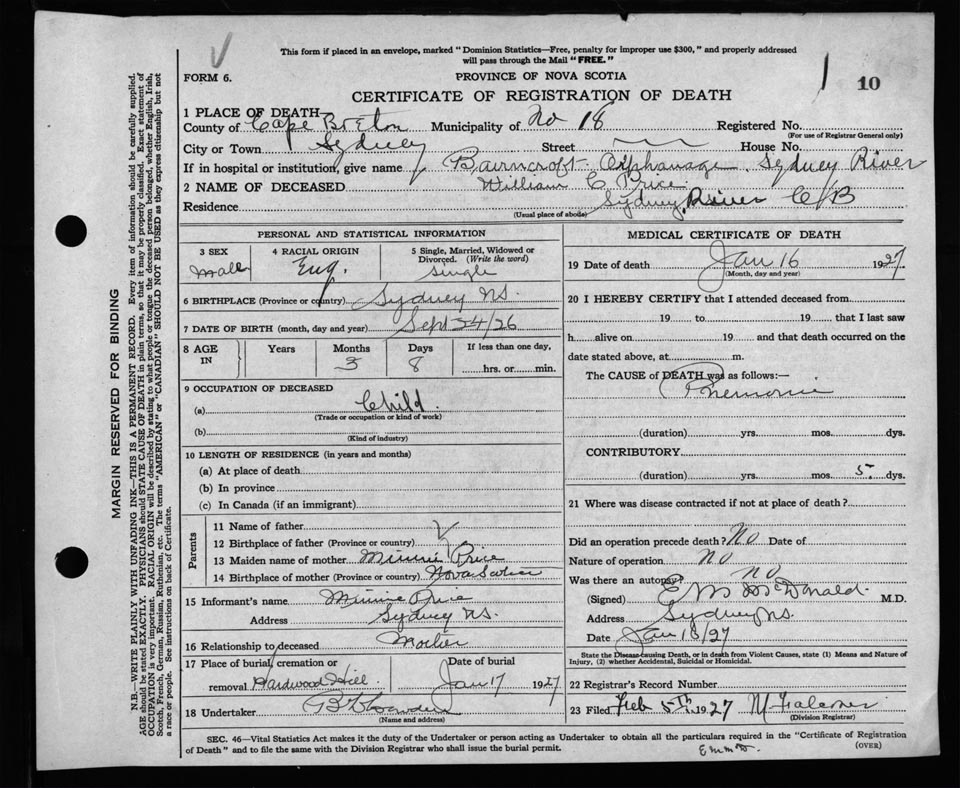 This form if placed in an envelope, marked "Dominion Statistics—Free, penalty for improper use $300," and properly addressed
will pass through the Mail "FREE."
FORM 6. PROVINCE OF NOVA SCOTIA 10
CERTIFICATE OF REGISTRATION OF DEATH
1 PLACE OF DEATH
County of Cape Breton Municipality of No 18 Registered No.
(For use of Registrar General only)
City or Town Sydney Street House No.
If in hospital or institution, give name Bairncroft Orphanage, Sydney River
2 NAME OF DECEASED William C Price
Residence Sydney River C/B
(Usual place of abode)
PERSONAL AND STATISTICAL INFORMATION
3 SEX 4 RACIAL ORIGIN 5 Single, Married, Widowed or
Divorced. (Write the word)
Male Eng. Single
6 BIRTHPLACE (Province or country) Sydney N.S.
7 DATE OF BIRTH (month, day and year) Sept 24/26
8 AGE IN Years Months Days If less than one day,
3 8 hrs. or min.
9 OCCUPATION OF DECEASED
(a) Child
(Trade or occupation or kind of work)
(b)
(Kind of industry)
10 LENGTH OF RESIDENCE (in years and months)
(a) At place of death
(b) In province
(c) In Canada (if an immigrant)
Parents
11 Name of father
12 Birthplace of father (Province or country)
13 Maiden name of mother Minnie Price
14 Birthplace of mother (Province or country) Nova Scotia
15 Informant's name Minnie Price
Address Sydney N.S.
16 Relationship to deceased Mother
17 Place of burial, cremation or Date of burial
removal Hardwood Hill Jan 17 1927
18 Undertaker
(Name and address)
MEDICAL CERTIFICATE OF DEATH
19 Date of death Jan 16 1927
(Month, day and year)
20 I HEREBY CERTIFY that I attended deceased from
19 to 19 that I last saw
h alive on 19 and that death occurred on the
date stated above, at m.
The CAUSE of DEATH was as follows:—
Pnemonia
(duration) yrs. mos. dys.
CONTRIBUTORY
(duration) yrs. mos. 5. dys.
21 Where was disease contracted if not at place of death?
Did an operation precede death? No Date of
Nature of operation No
Was there an autopsy? no
(Signed) E M McDonald M.D.
Address Sydney N.S.
Date Jan 18/27
State the Disease causing Death, or in death from Violent Causes, state (1) Means and Nature of
Injury, (2) whether Accidental, Suicidal or Homicidal.
22 Registrar's Record Number
23 Filed Feb 5th 1927
(Division Registrar)
SEC. 46—Vital Statistics Act makes it the duty of the Undertaker or person acting as Undertaker to obtain all the particulars required in the "Certificate of Registration
of Death" and to file the same with the Division Registrar who shall issue the burial permit.
(OVER)
MARGIN RESERVED FOR BINDING
N.B.—WRITE PLAINLY WITH UNFADING INK—THIS IS A PERMANENT RECORD. Every item of information should be carefully supplied.
AGE should be stated EXACTLY. PHYSICIANS should STATE CAUSE OF DEATH in plain terms, so that it may be properly classified. Exact statement of
OCCUPATION is very important. RACIAL ORIGIN will be described by stating to what people or tongue the deceased person belonged, whether English, Irish,
Scotch, French, German, Russian, Ruthenian, etc. The terms "AMERICAN" or "CANADIAN" SHOULD NOT BE USED as they express citizenship but not
a race or people. See instructions on back of Certificate.